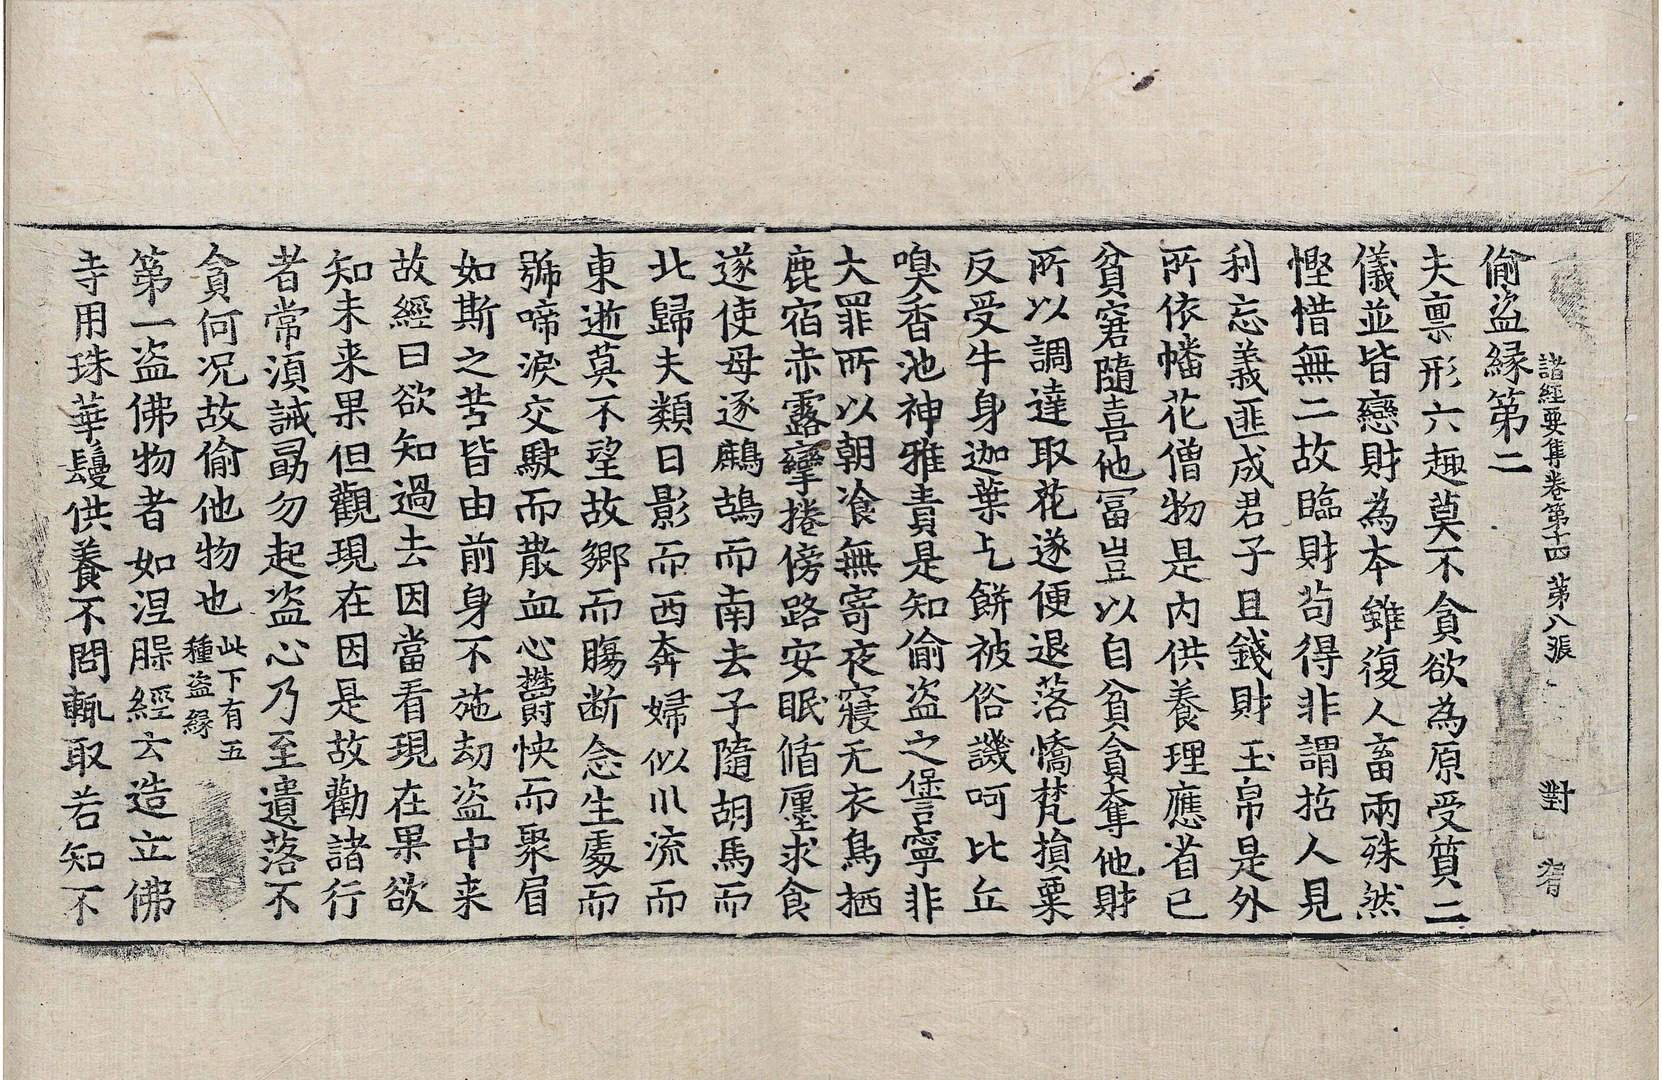 諸經要集卷第十四 第八張 對
偷盗縁第二
夫禀形六趣莫不貪欲為原受質二
儀並皆戀財為本雖復人畜兩殊然
慳惜無二故臨財茍得非謂哲人見
利忘義匪成君子且錢財玉帛是外
所依幡花僧物是内供養理應省已
貧窮隨喜他冨豈以自貧貪奪他財
所以調達取花遂便退落憍梵損粟
反受牛身迦葉乞餅被俗譏呵比丘
嗅香池神雅責是知偷盗之𠎝寧非
大罪所以朝飡無寄夜寢无衣鳥栖
鹿宿赤露攣捲傍路安眠循𢌅求食
遂使母逐鷓鴣而南去子隨胡馬而
北歸夫類日影而西奔婦似川流而
東逝莫不望故郷而膓断念生䖏而
號啼淚交駛而散血心欝怏而聚眉
如斯之苦皆由前身不施劫盗中来
故經曰欲知過去因當看現在果欲
知未来果但觀現在因是故勸諸行
者常湏誡勗勿起盗心乃至遺落不
貪何况故偷他物也 此下有五
種盗縁
第一盗佛物者如涅槃經云造立佛
寺用珠華鬘供養不問輙取若知不